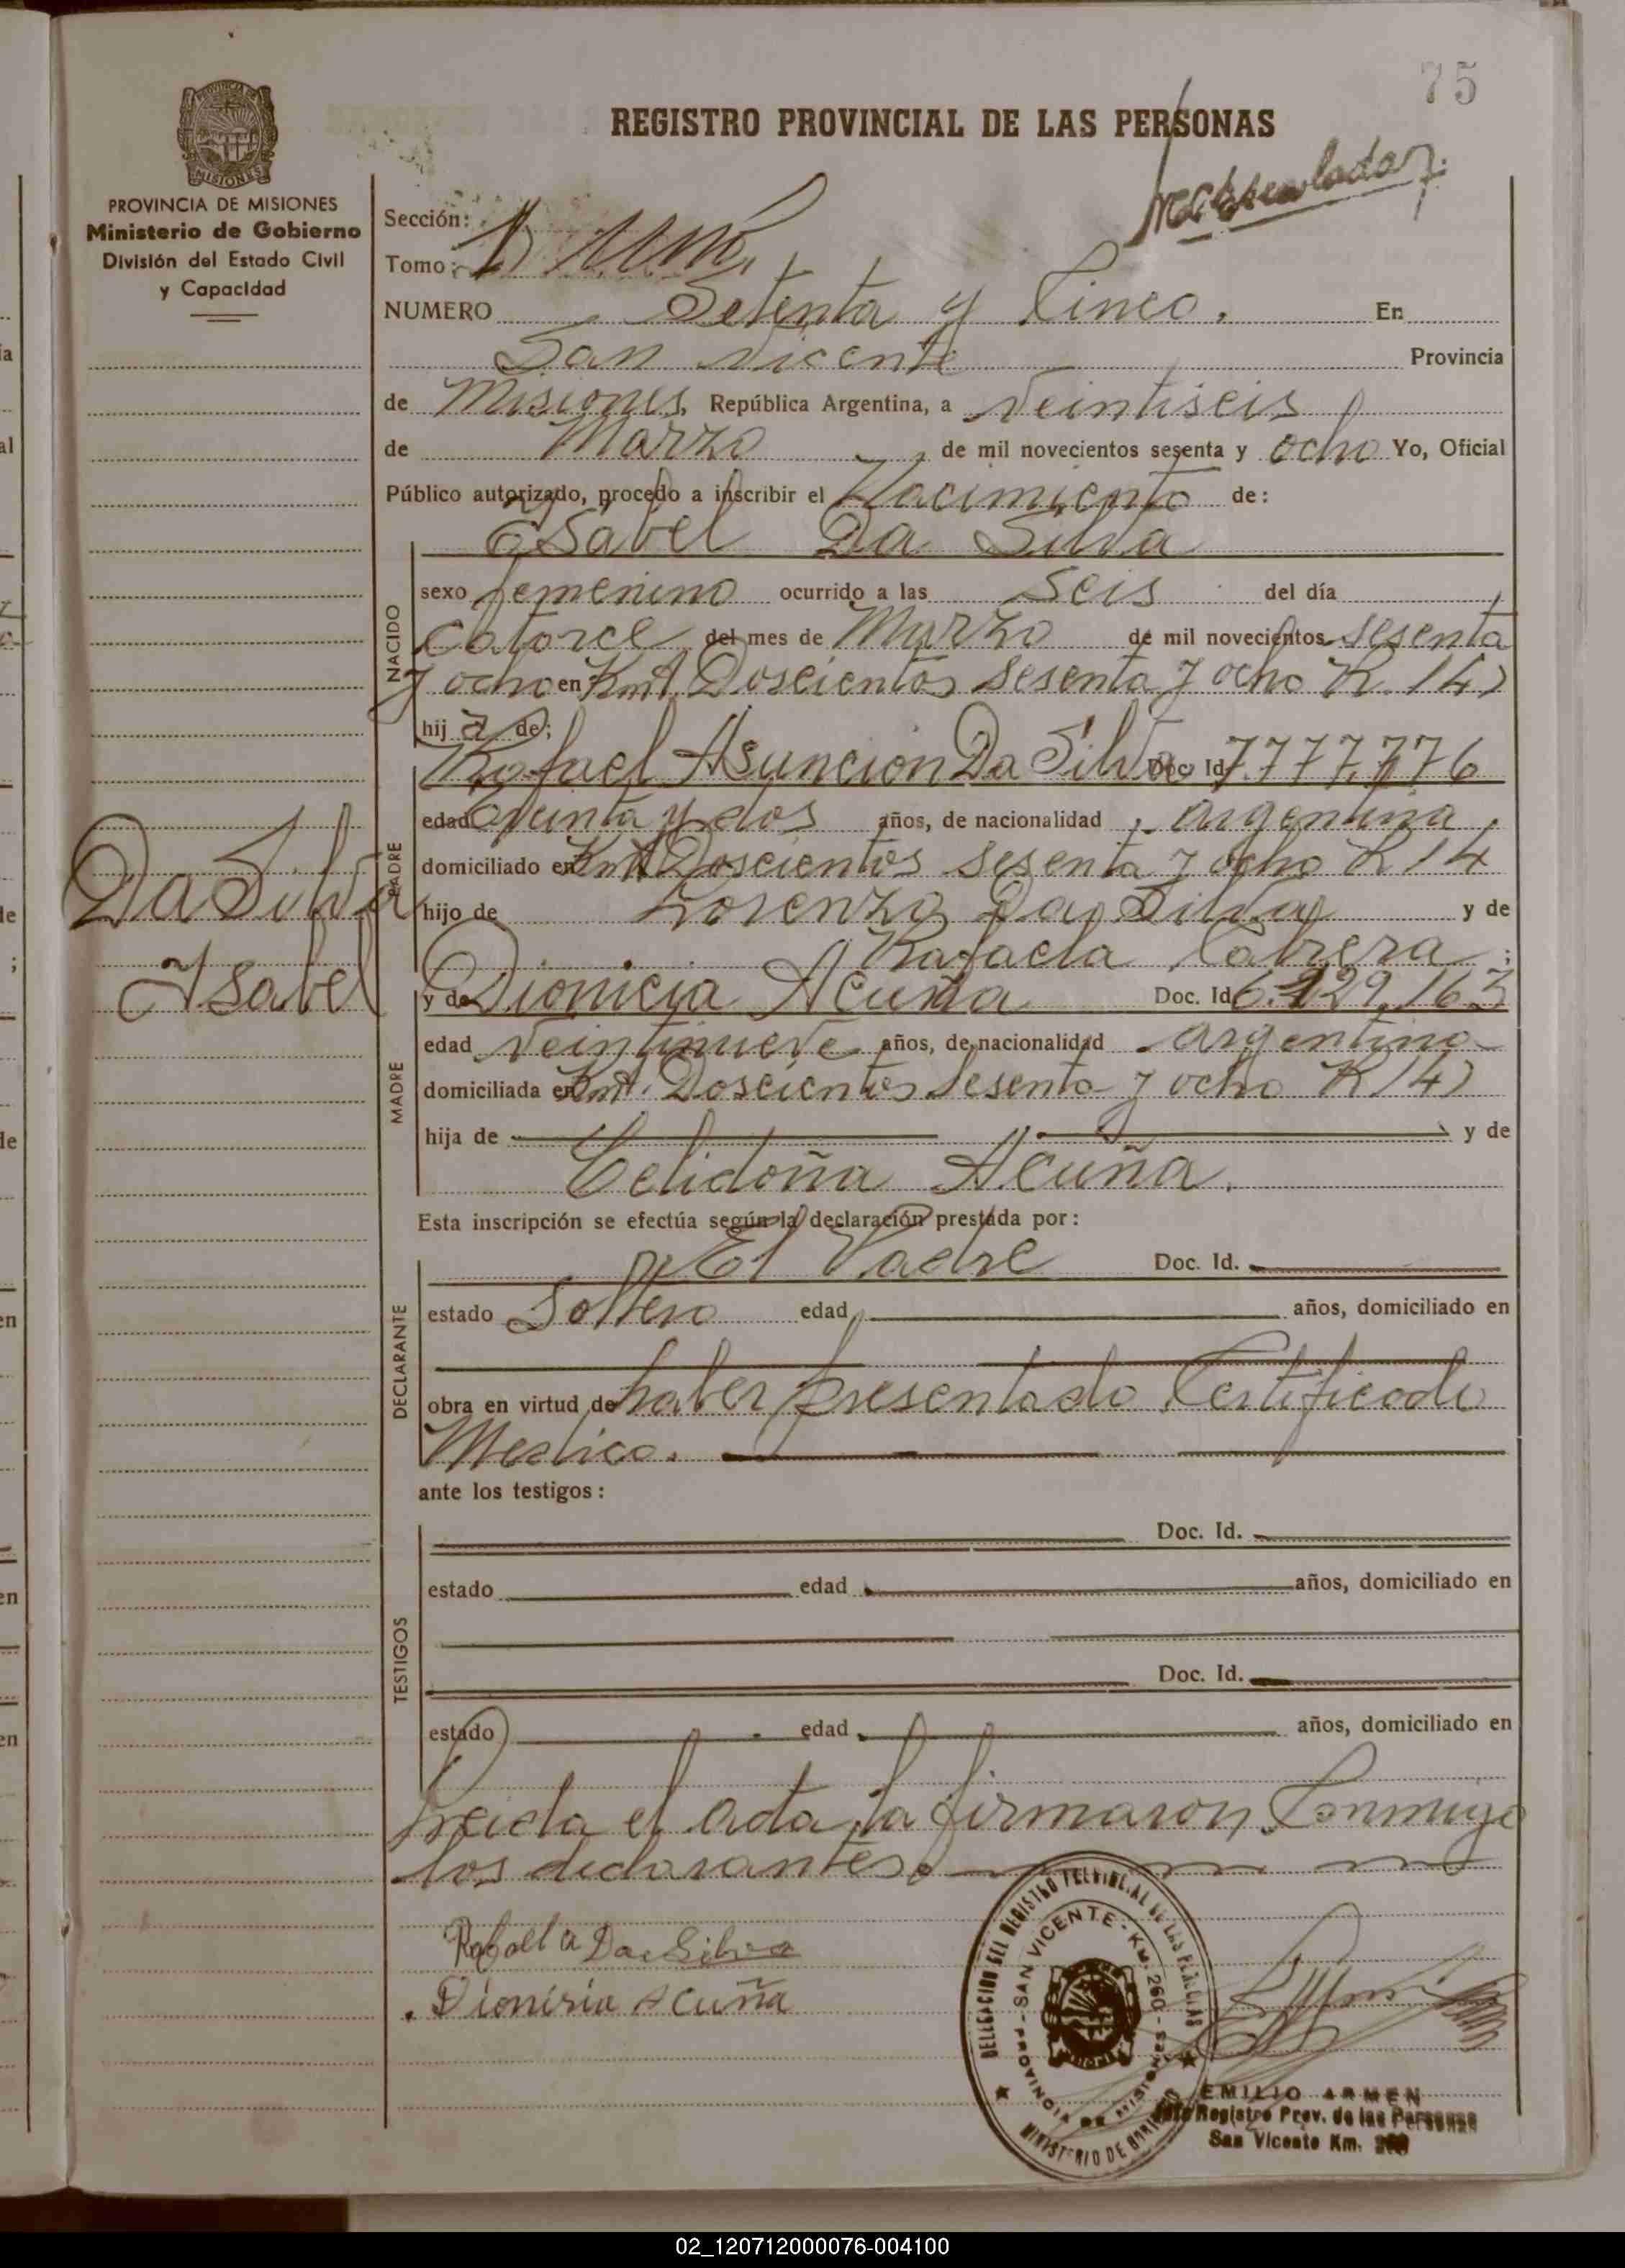 75
REGISTRO PROVINCIAL DE LAS PERSONAS
MISIONES
PROVINCIA DE MISIONES
Ministerio de Gobierno
División del Estado Civil
y Capacidad
Sección:
Tomo:
NUMERO Setenta y Cinco. En
San Vicente Provincia
de Misiones, República Argentina, a Veintiseis
de Marzo de mil novecientos sesenta y ocho Yo, Oficial
Público autorizado, procedo a inscribir el Nacimiento de:
Ysabel Da Silva
NACIDO
sexo femenino ocurrido a las Seis del día
Catorce del mes de Marzo de mil novecientos sesenta
y ocho en Kmt. Doscientos Sesenta y ocho R. 14)
hij a de:
Rafael Asuncion Da Silva Doc. Id. 7.777.776
PADRE
edad treinta y dos años, de nacionalidad argentina,
domiciliado en Kmt Doscientos Sesenta y ocho R 14
hijo de Lorenzo Da Silva y de
Rafaela Cabrera;
Da Silva
Ysabel
y de Dionicia Acuña Doc. Id. 129.163
MADRE
edad Veintinueve años, de nacionalidad argentina
domiciliada en Kmt. Doscientos Sesenta y ocho R 14)
hija de y de
Celidoña Acuña.
Esta inscripción se efectúa según la declaración prestada por:
El Padre Doc. Id.
DECLARANTE
estado Soltero edad años, domiciliado en
obra en virtud de haber presentado Certificado
Medico.
ante los testigos:
Doc. Id.
TESTIGOS
estado edad años, domiciliado en
Doc. Id.
estado edad años, domiciliado en
Leida el acta, la firmaron Conmigo
los declarantes.
Da Silva
Dionisia Acuña
DELEGACION DEL REGISTRO PROVINCIAL DE LAS PERSONAS
SAN VICENTE - KM. 260 -
PROVINCIA DE MISIONES
MINISTERIO DE GOBIERNO
EMILIO ARMEN
Registro Prov. de las Personas
San Vicente Km. 260
02_120712000076-004100